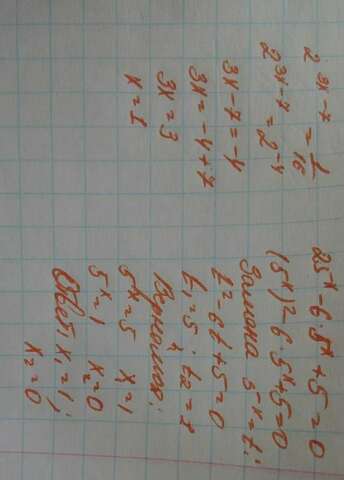 2^(3x-7) = 1/16
2^(3x-7) = 2^(-4)
3x-7 = -4
3x = -4+7
3x = 3
x = 1
25^x - 6·5^x + 5 = 0
(5^x)^2 - 6·5^x + 5 = 0
Замена 5^x = t;
t^2 - 6t + 5 = 0
t₁ = 5; t₂ = 1
Вернемся;
5^x = 5 x₁ = 1
5^x = 1 x₂ = 0
Ответ: x₁ = 1;
x₂ = 0